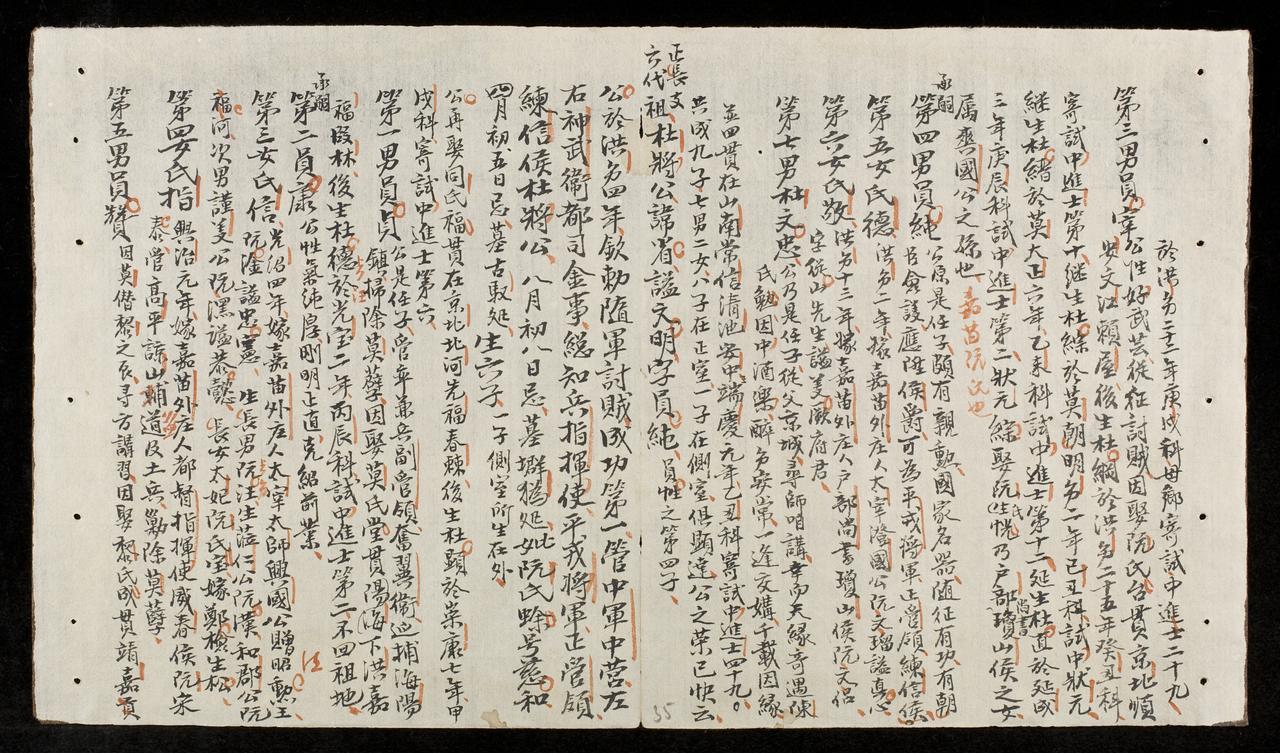 於洪名二十一年庚戌科母鄉寄試中進士二十九
第三男員寧公性好武芸從征討賊因娶阮氏台貫京北順
安文江賴屋後生杜綱於洪名二十五年癸丑科
寄試中進士第十継生杜綜於莫朝明名二年己丑科試中狀元
継生杜緒於莫大正六年乙未科試中進士第十二延生杜直於延成
三年庚辰科試中進士第二狀元綜娶阮氏恍乃戶部尚書瓊山侯之女
属璽國公之孫也嘉苗阮氏也
承嗣
第四男員純公原是任子頗有親勳國家名器随征有功有朝
臣僉議應陞侯爵可為平戎將軍正營領練信侯
第五女氏德洪名二年嫁嘉苗外庄人太宰澄國公阮文瑠謚真心
第六女氏敬洪名十三年嫁嘉苗外庄人戶部尚書瓊山侯阮文侶
字從山先生謚美厥府君
第七男杜文忠公乃是任子從父京城尋師咱講幸而天縁奇遇陳
氏勳因中酒樂醉名安常一逢交媾千載因縁
並四貫在山南常信清池安中端慶元年乙丑科寄試中進士四十九
共成九子七男二女八子在正室一子在側室俱顯達公之荣已快云
正長支
六代祖杜將公諱省謚文明字員純員性之第四子
公於洪名四年欽勅随軍討賊成功第一管中軍中营左
右神武衛都司金事総知兵指揮使平戎將軍正营領
練信侯杜將公八月初八日忌墓壙猫処妣阮氏蜍号慈和
四月初五日忌墓古取処生六子一子側室所生在外
公再娶同氏福貫在京北北河先福春棘後生杜顯於崇康七年甲
戌科寄試中進士第六
第一男員貞公是任子管率兼兵副营領奮翼衛迎捕海陽
鎮掃除莫孽因娶莫氏堂貫陽海下洪嘉
福段林後生杜德於光宝二年丙辰科試中進士第二不回祖地
承嗣
第二員康公性氣純厚剛明正直克紹前業
第三女氏信光治四年嫁嘉苗外庄人太宰太師興國公贈昭勳王
阮淦謚忠憲生長男阮汪生蒞仁公阮漢和郡公阮
福河次男謹美公阮潶謚恭懿長女太妃阮氏宝嫁鄭檢生松
第四女氏指興治元年嫁嘉苗外庄人都督指揮使威春侯阮宋
泰營高平諒山輔道及土兵勦除莫孽
第五男員贊因莫僭黎之辰尋方講習因娶黎氏成貫靖嘉貢
汪
35